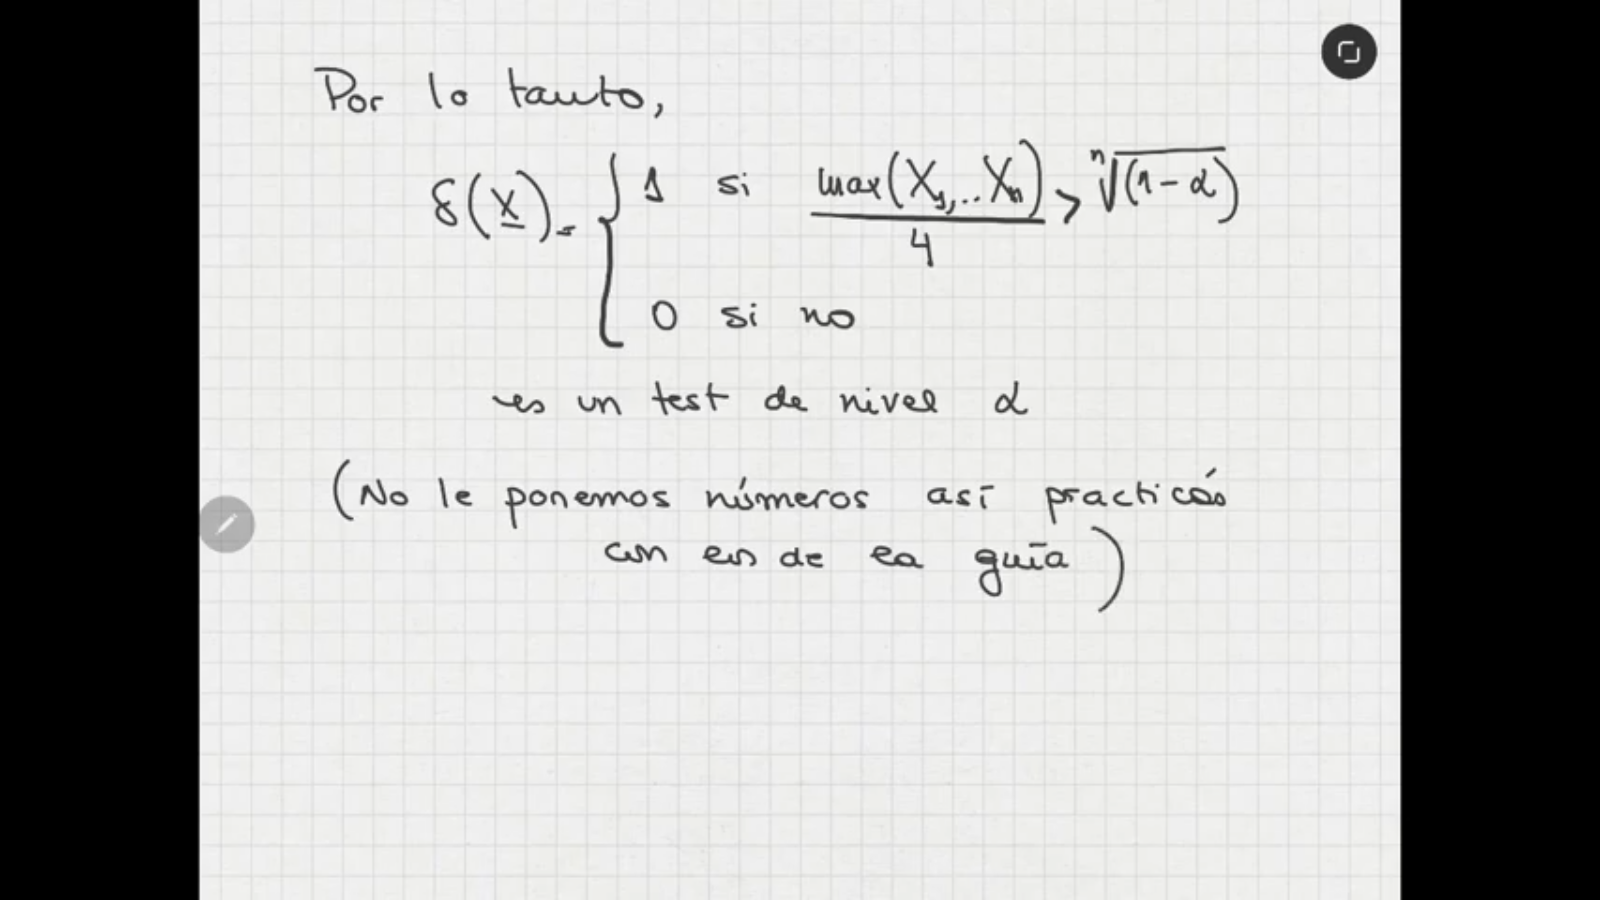 Por lo tanto,
δ(X) = { 1 si max(X1,..Xn)/4 > ⁿ√(1-α)
0 si no
es un test de nivel α
(No le ponemos números así practicás
con los de la guía)